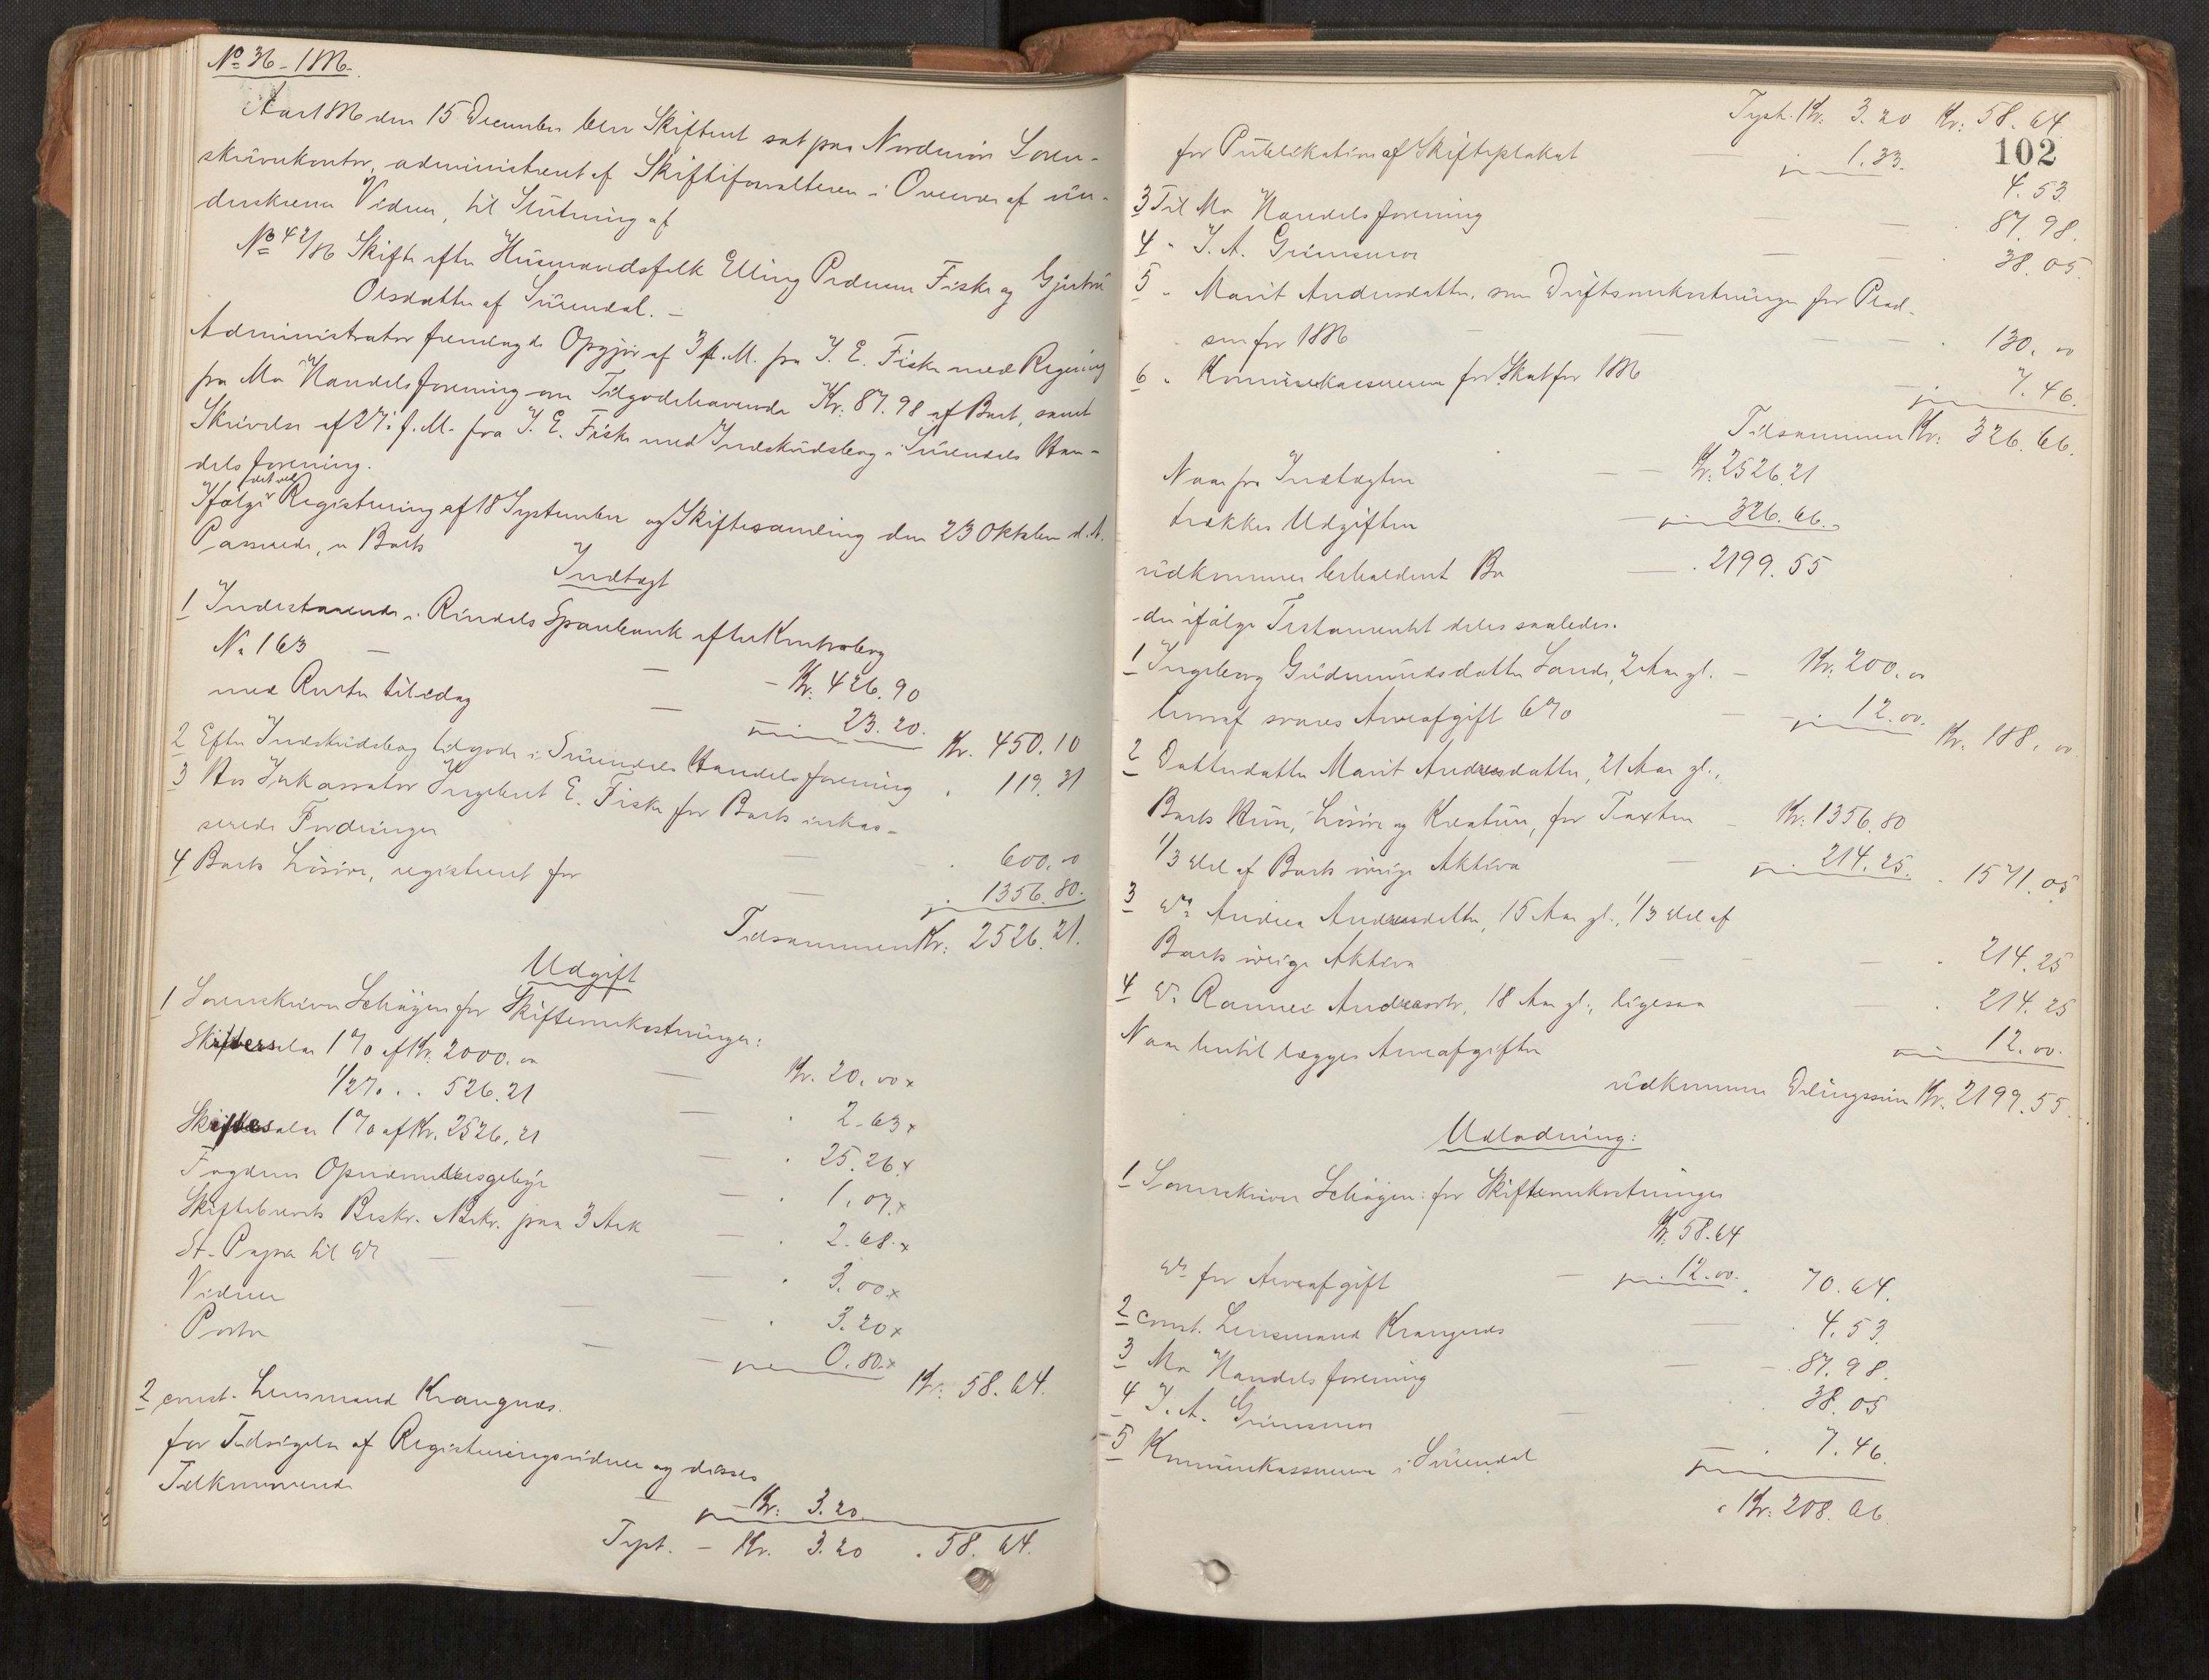 No 36 - 1886.
Aar 1886 den 15 December blev Skifteret sat paa Nordmør Soren-
skriverkontor, administreret af Skifteforvalteren i Overvær af un-
derskrevne Vidner, til Slutning af
No 42/86 Skifte efter Husmandsfolk Elling Pedersen Fiske og Gjertru
Olsdatter af Surendal. -
Administrator fremlagde Opgjør af 3 f. M. fra I. E. Fiske med Regning
fra Mo Handelsforening om Tilgodehavende Kr: 87.98 af Boet, samt
Skrivelse af 27. f. M. fra I. E. Fiske med Indskudsbog i Surendals Han-
delsforening.
Ifølge det ved Registrering af 18 September og Skiftesamling den 23 Oktober d. A.
Passerede, er Boets
Indtægt
1 Indestaaende i Rindals Sparebank efter Kontrabog
No 163 - Kr: 426.90
med Renter til idag 23.20. Kr. 450.10
2 Efter Indskudsbog tilgode i Surendals Handelsforening . 119.31
3 Hos Inkassator Ingebret E. Fiske for Boets inkas-
serede Fordringer . 600.00
4 Boets Løsøre, registreret for 1356.80.
Tilsammen Kr: 2526.21.
Udgift
1 Sorenskriver Schøyen for Skifteomkostninger:
Skiftersalær 1 % af Kr. 2000.00 Kr. 20.00 x
1/2 % . . 526.21 . 2.63 x
Skiftesalær 1 % af Kr. 2526.21 . 25.26 x
Fogdens Opnævnelsesgebyr . 1.07 x
Skiftebrevets Beskr. paa 3 Ark . 2.68 x
St. Papir til do . 3.00 x
Vidner . 3.20 x
Porto 0.80 x Kr: 58.64.
2 const. Lensmand Krangnæs.
for Tilsigelse af Registreringsvidner og disses
Tilkommende Kr: 3.20
Tspt. - Kr. 3.20 . 58.64.
Tspt. Kr. 3.20 Kr: 58.64.
102
for Publikation af Skifteplakat 1.33.
4.53.
3 Til Mo Handelsforening . 87.98.
4 " I. A. Grimsmo . 38.05.
5 " Marit Andersdatter, som Driftsomkostninger for Plad-
sen for 1886 . 130.00
6 " Kommunekassereren for Skat for 1886 7.46.
Tilsammen Kr: 326.66.
Naar fra Indtægten Kr. 2526.21
trækkes Udgiften 326.66.
udkommer beholdent Bo . 2199.55
der ifølge Testamentet deles saaledes.
1 Ingeborg Gudmundsdatter Lande, 2 Aar gl. - Kr. 200.00
hvoraf svares Arveafgift 6 % 12.00. Kr. 188.00
2 Datterdatter Marit Andreasdatter, 21 Aar gl.,
Boets Huse, Løsøre og Kreature, for Taxten - Kr: 1356.80
1/3 Del af Boets øvrige Aktiva 214.25. . 1571.05
3 do Andrea Andreasdatter, 15 Aar gl., 1/3 Del af
Boets øvrige Aktiva . 214.25
4 do Rannei Andreasdtr, 18 Aar gl., ligesaa . 214.25
Naar hertil lægges Arveafgiften 12.00.
udkommer Delingssum Kr. 2199.55.
Udlodning:
1 Sorenskriver Schøyen: for Skifteomkostninger
Kr. 58.64
do for Arveafgift 12.00. . 70.64.
2 const. Lensmand Krangnæs . 4.53.
3 Mo Handelsforening . 87.98.
4 I. A. Grimsmo . 38.05
5 Kommunekassereren i Surendal . 7.46.
Kr: 208.66.